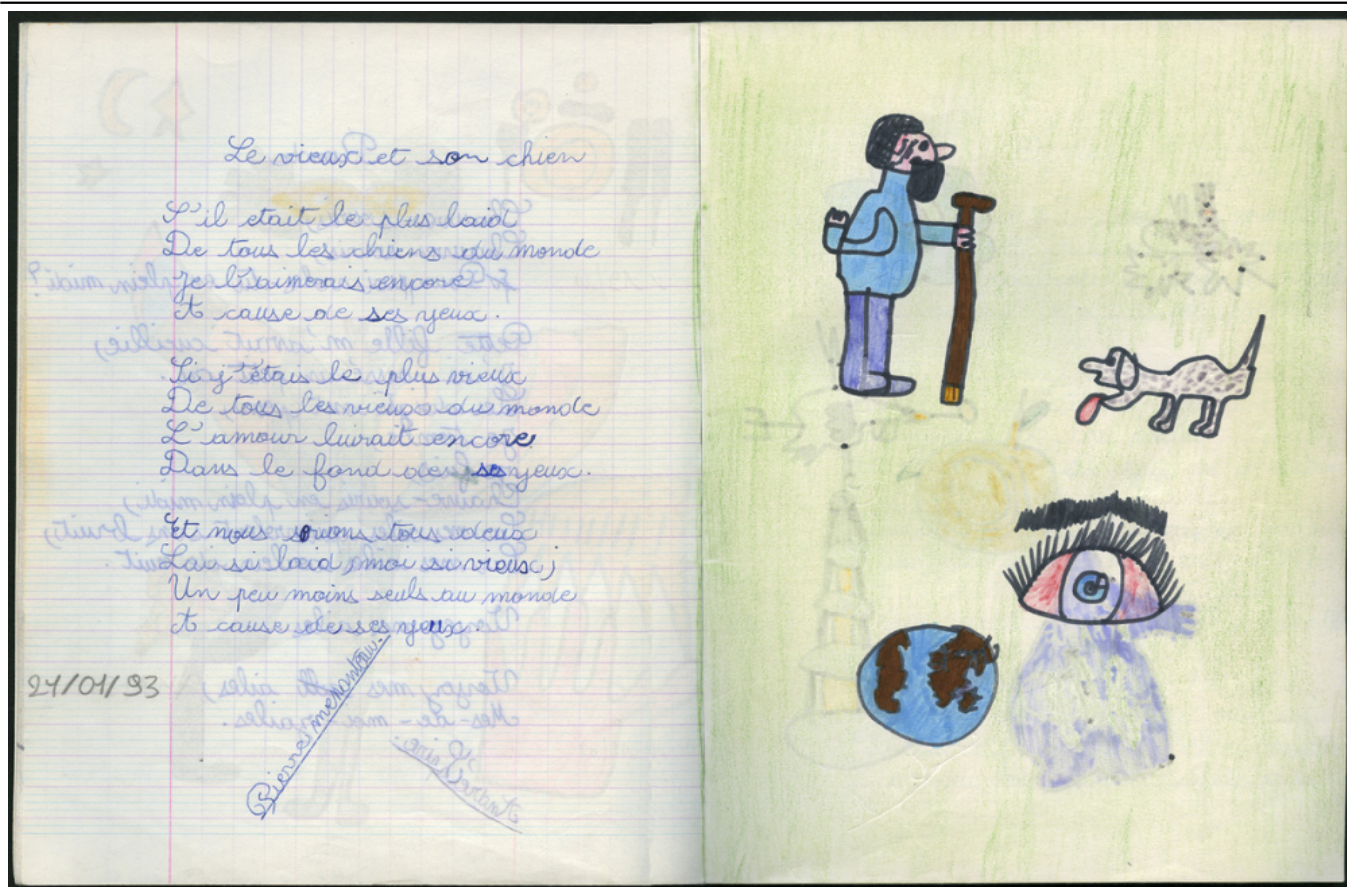 Le vieux et son chien
S'il etait le plus laid
De tous les chiens du monde
Je l'aimerais encore
A cause de ses yeux.
Si j'étais le plus vieux
De tous les vieux du monde
L'amour luirait encore
Dans le fond de ses yeux.
Et nous serions tous deux
Lui si laid, moi si vieux,
Un peu moins seuls au monde
A cause de ses yeux.
21/01/93
Pierre menanteau.